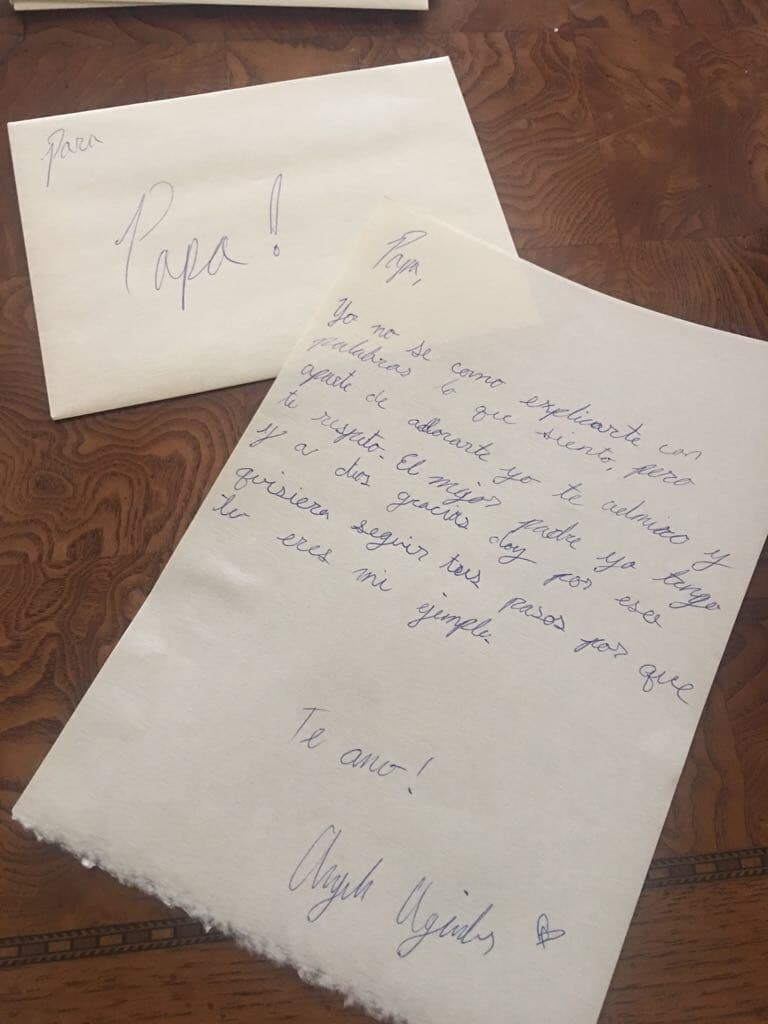 Para
Papa!
Papa,
Yo no se como explicarte con
palabras lo que siento, pero
aparte de adorarte yo te admiro y
te respeto. El mejor padre yo tengo
y a dios gracias doy por eso
quisiera seguir tus pasos por que
tu eres mi ejemplo.
Te amo!